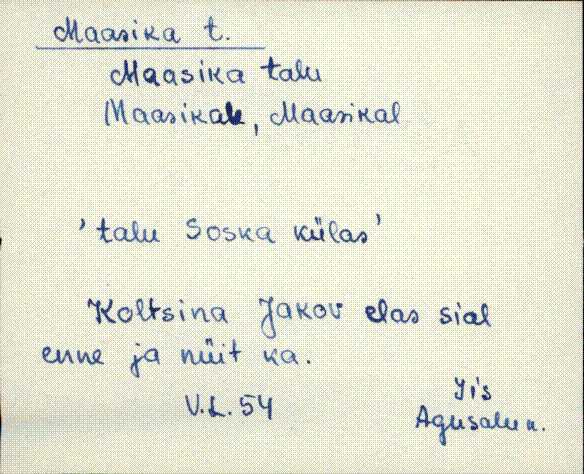 Maasika t.
Maasika talu
Maasikale, Maasikal
'talu Soska külas'
Koltsina Jakov elas sial
enne ja nüit ka.
V.L. 54
Iis
Agusalu k.